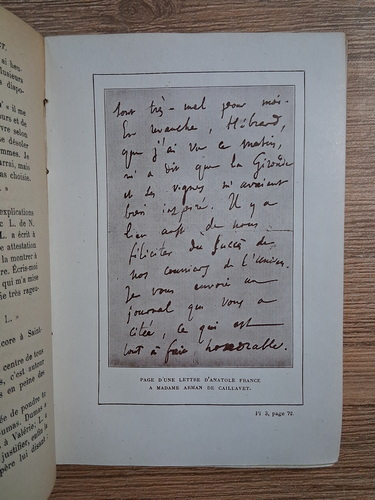 si ben-
lusieurs
dispo-
» il me
ours et de
vre selon
se désoler
mmes. Je
urrai, mais
as choisie.
explications
c L. de N.
L. a écrit à
e attestation
la montrer à
re. Écris-moi
qui m'a mise
ie très rageu-
L. »
core à Saint-
centre de tout
s, c'est autour
s en peine des
ée de poudre
umas. Dumas
à Valérie:
justifier, enfin
père lui disait
sont très-mal pour moi.
En revanche, Hébrard,
que j'ai vu ce matin,
m'a dit que la Gironde
et les vignes m'avaient
bien inspiré. Il y a
lieu aussi de nous
féliciter du succès de
nos courriers de l'Univers.
Je vous envoie un
journal qui vous a
citée, ce qui est
tout à fait honorable.
PAGE D'UNE LETTRE D'ANATOLE FRANCE
A MADAME ARMAN DE CAILLAVET.
Pl 3, page 72.